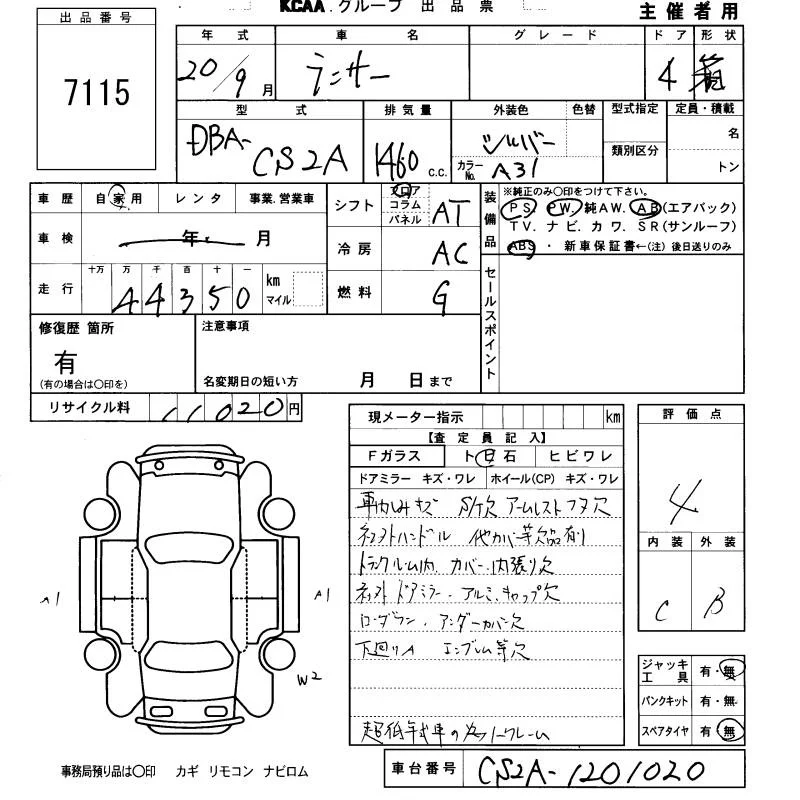 KCAA.グループ 出品票
主催者用
出品番号
7115
年式 車名 グレード ドア 形状
20/9月 ランサー 4 箱
型式 排気量 外装色 色替 型式指定 定員・積載
DBA-CS2A 1460 c.c. シルバー 類別区分 名
カラーNo. A31 トン
車歴 自家用 レンタ 事業.営業車
シフト フロア コラム パネル AT
装備品 ※純正のみ〇印をつけて下さい。
PS. PW. 純AW. AB(エアバック)
TV. ナビ. カワ. SR(サンルーフ)
ABS ・ 新車保証書←(注) 後日送りのみ
車検 年 月
冷房 AC
走行 十万 万 千 百 十 一
44350 km マイル
燃料 G
セールスポイント
修復歴 箇所
有
(有の場合は〇印を)
注意事項
名変期日の短い方 月 日まで
リサイクル料 11020円
現メーター指示 km
【査定員記入】
Fガラス ト日石 ヒビワレ
ドアミラー キズ・ワレ ホイール(CP) キズ・ワレ
車内しみキズ S/T欠 アームレストフタ欠
ハンドル 他カバー等欠品有り
トランクルーム内. カバー.内張り欠
ドアミラー. アルミ.キャップ欠
ローダウン. アンダーカバー欠
下廻りA エンブレム等欠
超低年式車の為ノークレーム
評価点
4
内装 外装
C B
A1
A1
W2
ジャッキ 工具 有・無
パンクキット 有・無
スペアタイヤ 有 無
事務局預り品は〇印 カギ リモコン ナビロム
車台番号 CS2A-1201020